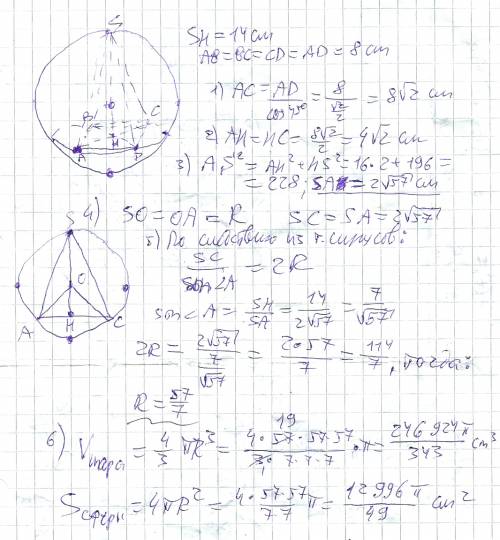 S
B
C
O
A
H
D
SH = 14 см
AB = BC = CD = AD = 8 см
1) AC = AD / cos 45° = 8 / (√2/2) = 8√2 см
2) AH = HC = 8√2 / 2 = 4√2 см
3) AS² = AH² + HS² = 16·2 + 196 =
= 228; SA = 2√57 см
4) SO = OA = R SC = SA = 2√57
S
O
A
H
C
5) По следствию из т. синусов:
SC / sin ∠A = 2R
sin ∠A = SH / SA = 14 / 2√57 = 7 / √57
2R = 2√57 / (7/√57) = 2·57 / 7 = 114 / 7, тогда:
R = 57 / 7
6) Vшара = 4/3 πR³ = 4·57·57·57 / 3·7·7·7 ·π = 246 924π / 343 см³
19
1
Sсферы = 4πR² = 4·57·57 / 7·7 π = 12 996π / 49 см²